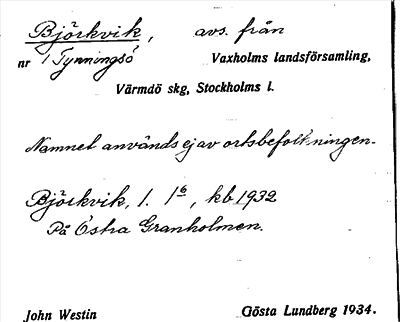 Björkvik, avs. från
nr 1 Tynningsö Vaxholms landsförsamling,
Värmdö skg, Stockholms l.
Namnet används ej av ortsbefolkningen.
Björkvik, l. 1⁶, kb 1932
På Östra Granholmen.
John Westin Gösta Lundberg 1934.